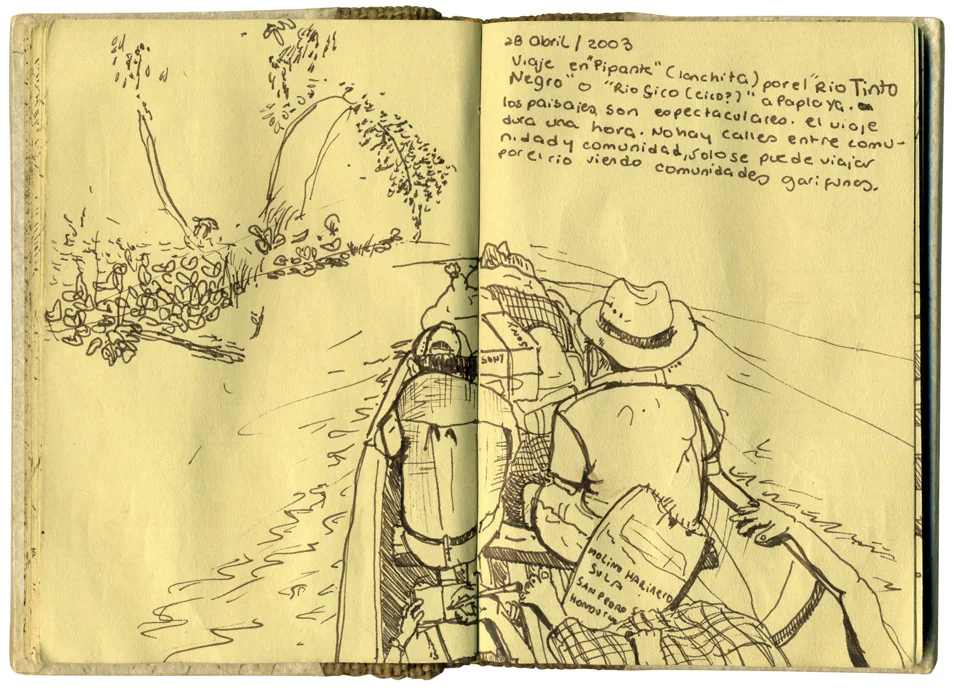 28 Abril / 2003
Viaje en "Pipante" (lanchita) por el "Rio Tinto
Negro" o "Rio Sico (cico?)" a Paplaya.
los paisajes son espectaculares. el viaje
dura una hora. No hay calles entre comu-
nidad y comunidad, solo se puede viajar
por el rio viendo comunidades garifunas.
SONY
MOLINO HARINERO
SULA
SAN PEDRO S
HONDUR